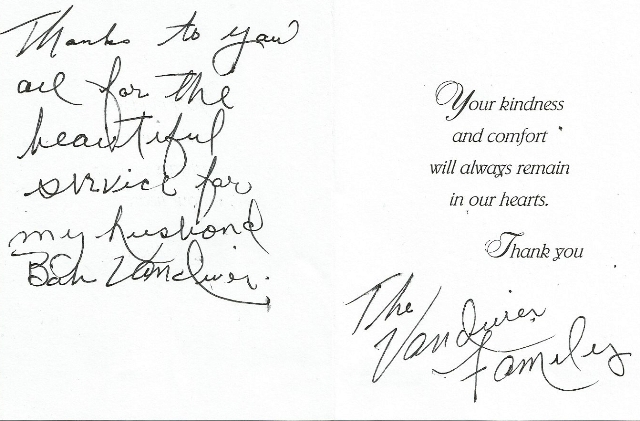 Thanks to you
all for the
beautiful
service for
my husband
Vandiver.
Your kindness
and comfort
will always remain
in our hearts.
Thank you
The
Vandiver
Family